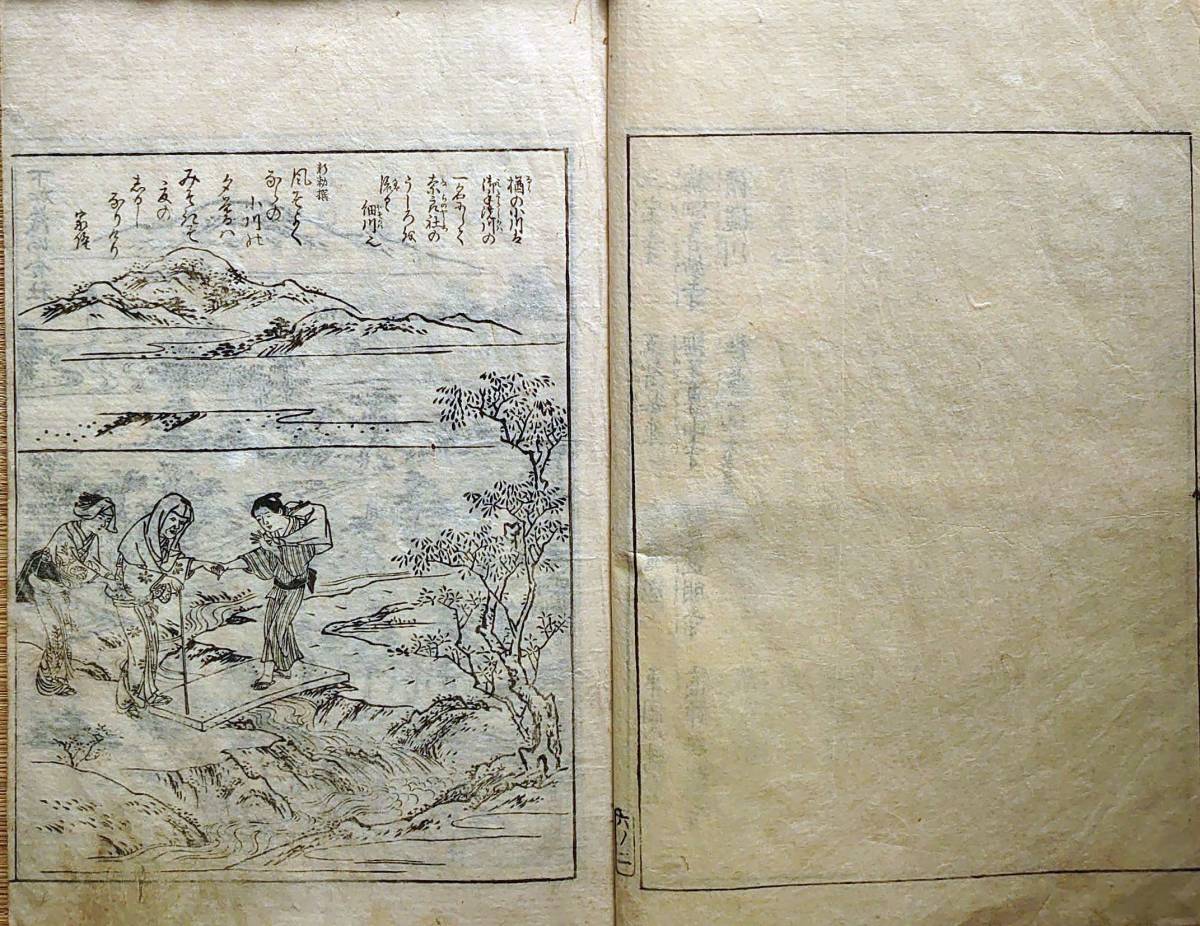 楢の小川は
御手洗川の
一名にして
奈良社の
うしろを
流るゝ
細川也
新勅撰
風そよく
ならの
小川の
夕暮ハ
みそきそ
夏の
しるし
なりける
家隆
六ノ二